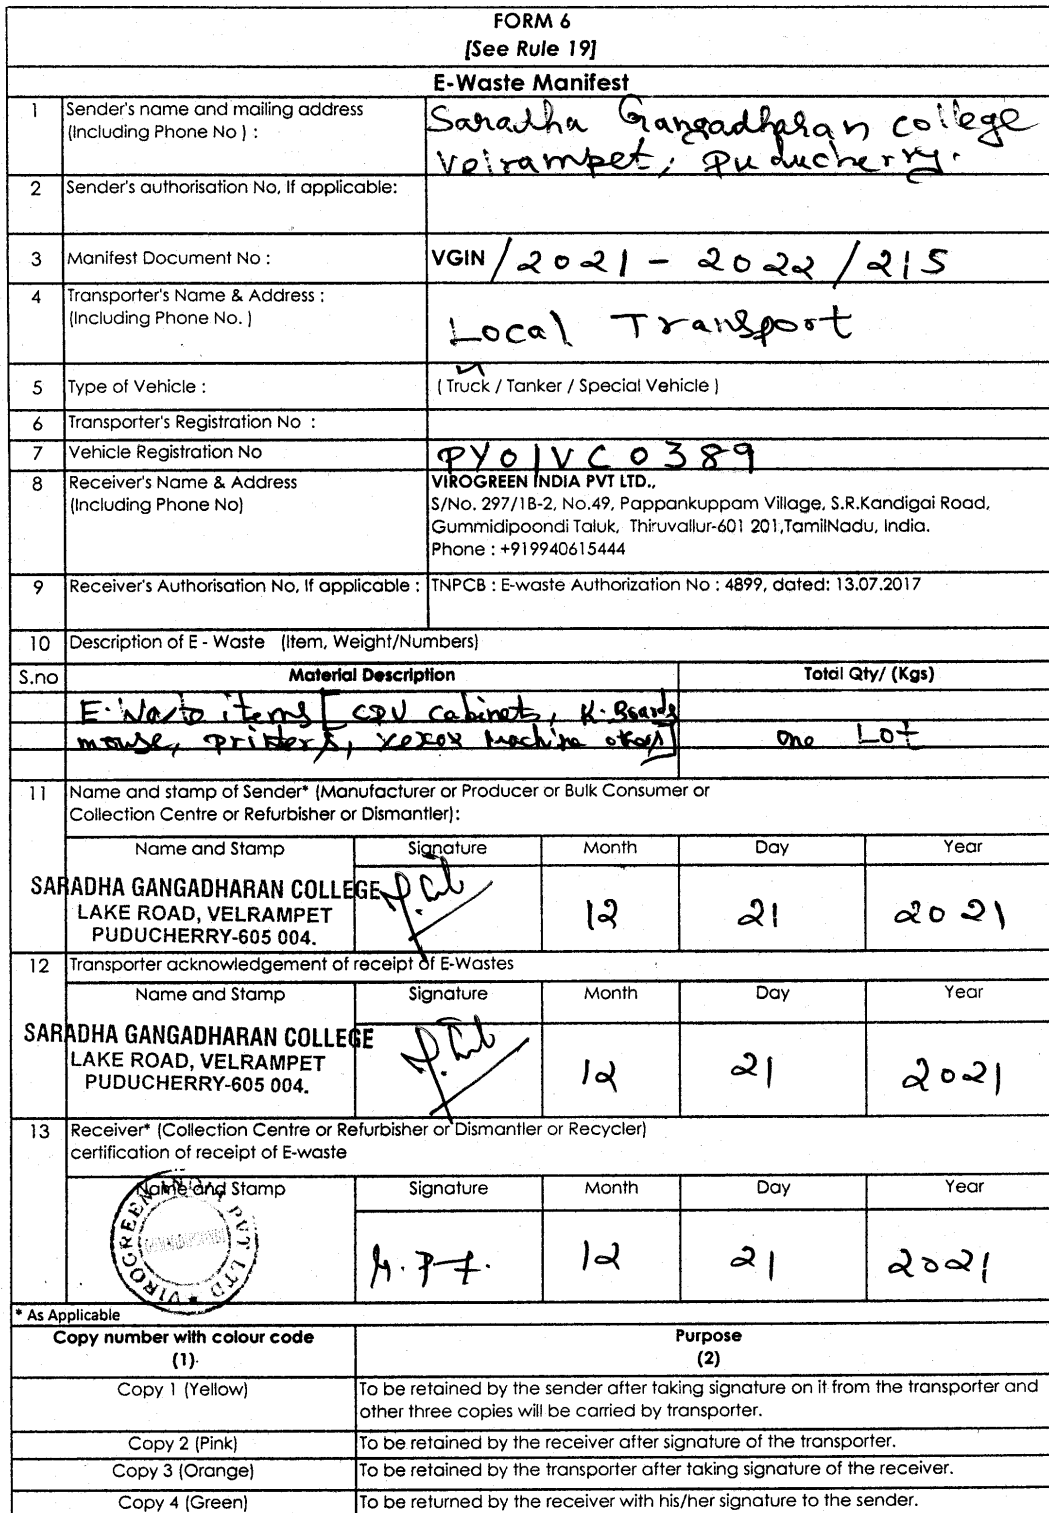 FORM 6
[See Rule 19]
E-Waste Manifest
1 Sender's name and mailing address
(Including Phone No ) :
Saradha Gangadharan college
Velrampet, Puducherry.
2 Sender's authorisation No, If applicable:
3 Manifest Document No : VGIN /2021 - 2022 /215
4 Transporter's Name & Address :
(Including Phone No. )
Local Transport
5 Type of Vehicle : ( Truck / Tanker / Special Vehicle )
6 Transporter's Registration No :
7 Vehicle Registration No PY01VC0389
8 Receiver's Name & Address
(Including Phone No)
VIROGREEN INDIA PVT LTD.,
S/No. 297/1B-2, No.49, Pappankuppam Village, S.R.Kandigai Road,
Gummidipoondi Taluk, Thiruvallur-601 201,TamilNadu, India.
Phone : +919940615444
9 Receiver's Authorisation No, If applicable : TNPCB : E-waste Authorization No : 4899, dated: 13.07.2017
10 Description of E - Waste (Item, Weight/Numbers)
S.no Material Description Total Qty/ (Kgs)
E-Waste items [ CPU cabinets, K-Boards
mouse, printers, xerox machine ] One Lot
11 Name and stamp of Sender* (Manufacturer or Producer or Bulk Consumer or
Collection Centre or Refurbisher or Dismantler):
Name and Stamp Signature Month Day Year
SARADHA GANGADHARAN COLLEGE
LAKE ROAD, VELRAMPET
PUDUCHERRY-605 004.
12 21 2021
12 Transporter acknowledgement of receipt of E-Wastes
Name and Stamp Signature Month Day Year
SARADHA GANGADHARAN COLLEGE
LAKE ROAD, VELRAMPET
PUDUCHERRY-605 004.
12 21 2021
13 Receiver* (Collection Centre or Refurbisher or Dismantler or Recycler)
certification of receipt of E-waste
Name and Stamp Signature Month Day Year
VIROGREEN INDIA PVT LTD *
12 21 2021
* As Applicable
Copy number with colour code Purpose
(1) (2)
Copy 1 (Yellow) To be retained by the sender after taking signature on it from the transporter and
other three copies will be carried by transporter.
Copy 2 (Pink) To be retained by the receiver after signature of the transporter.
Copy 3 (Orange) To be retained by the transporter after taking signature of the receiver.
Copy 4 (Green) To be returned by the receiver with his/her signature to the sender.